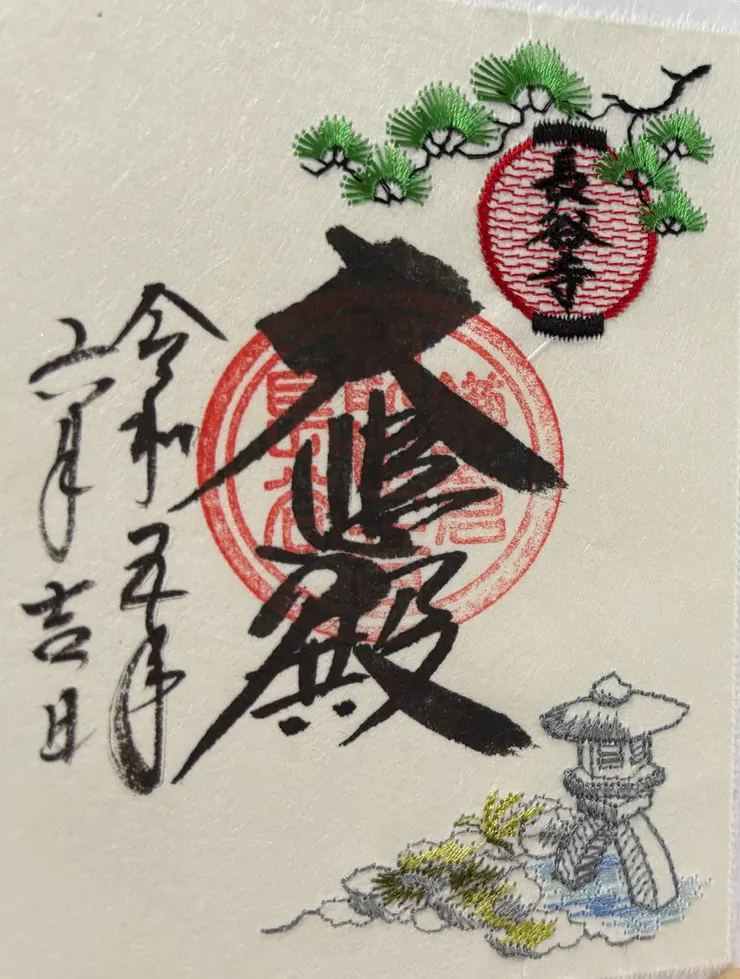 長谷寺
大悲殿
令和五年
六月吉日